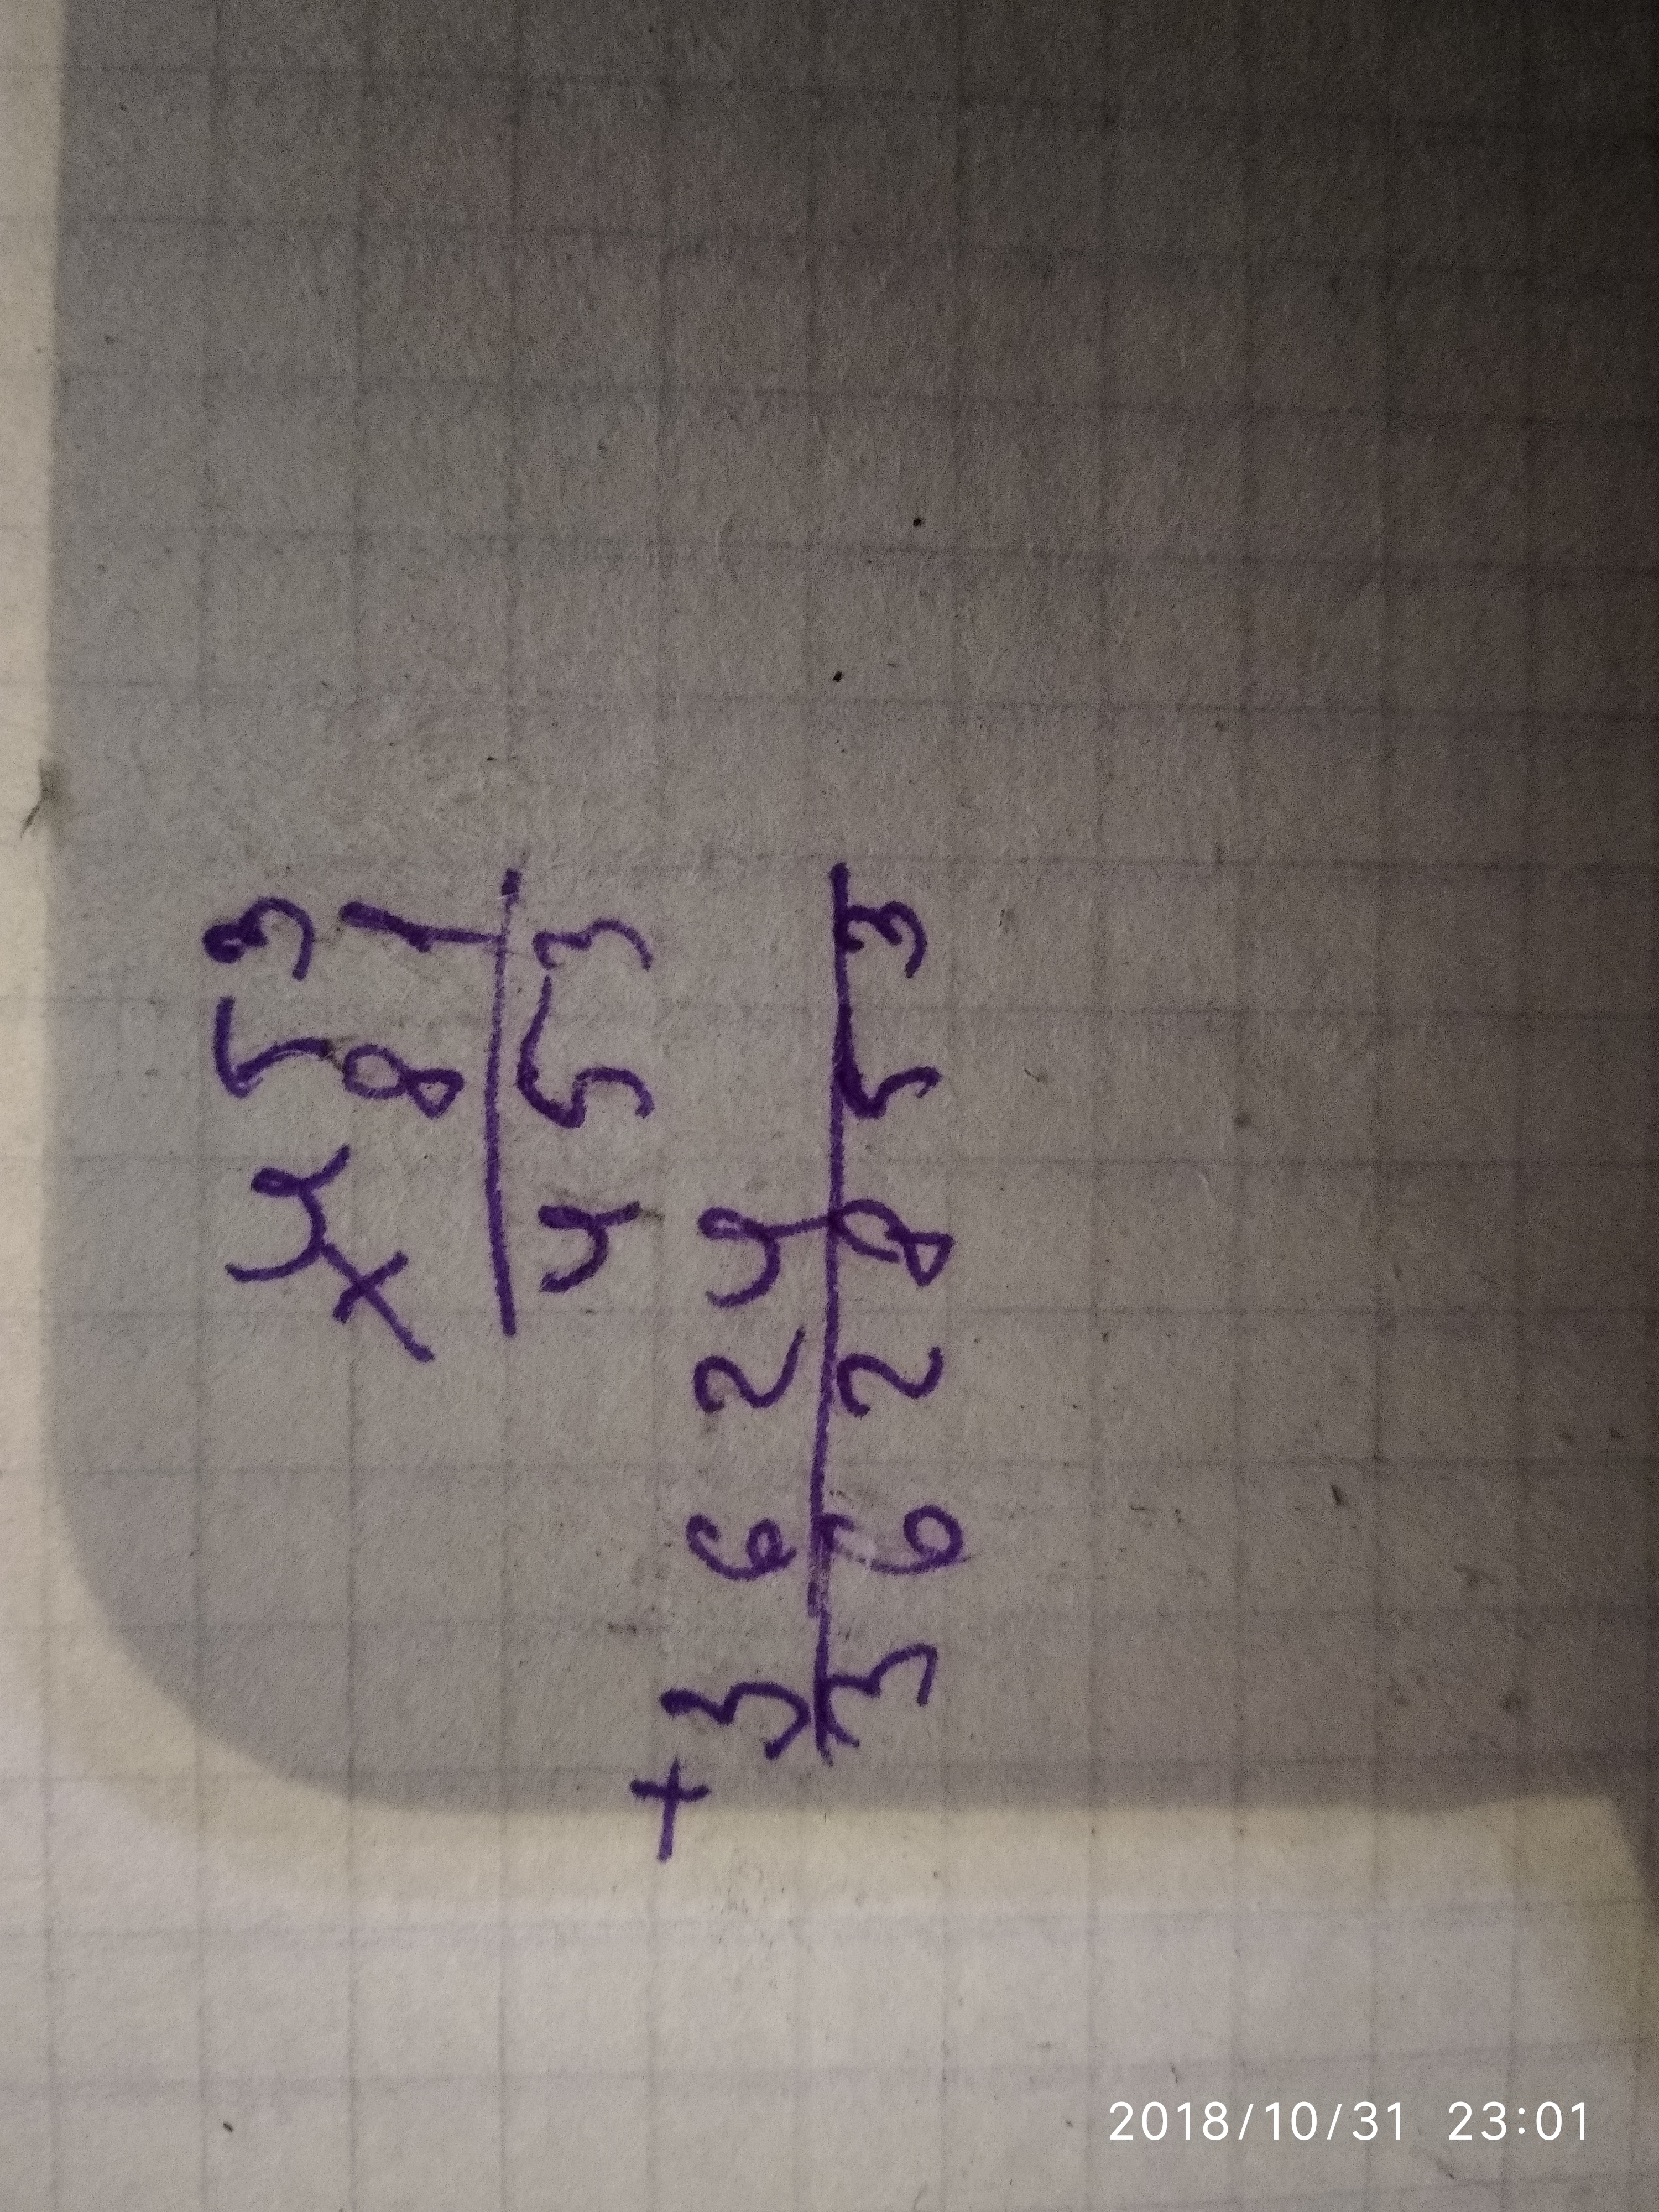 453
× 81
453
+ 3624
362853
2018/10/31 23:01